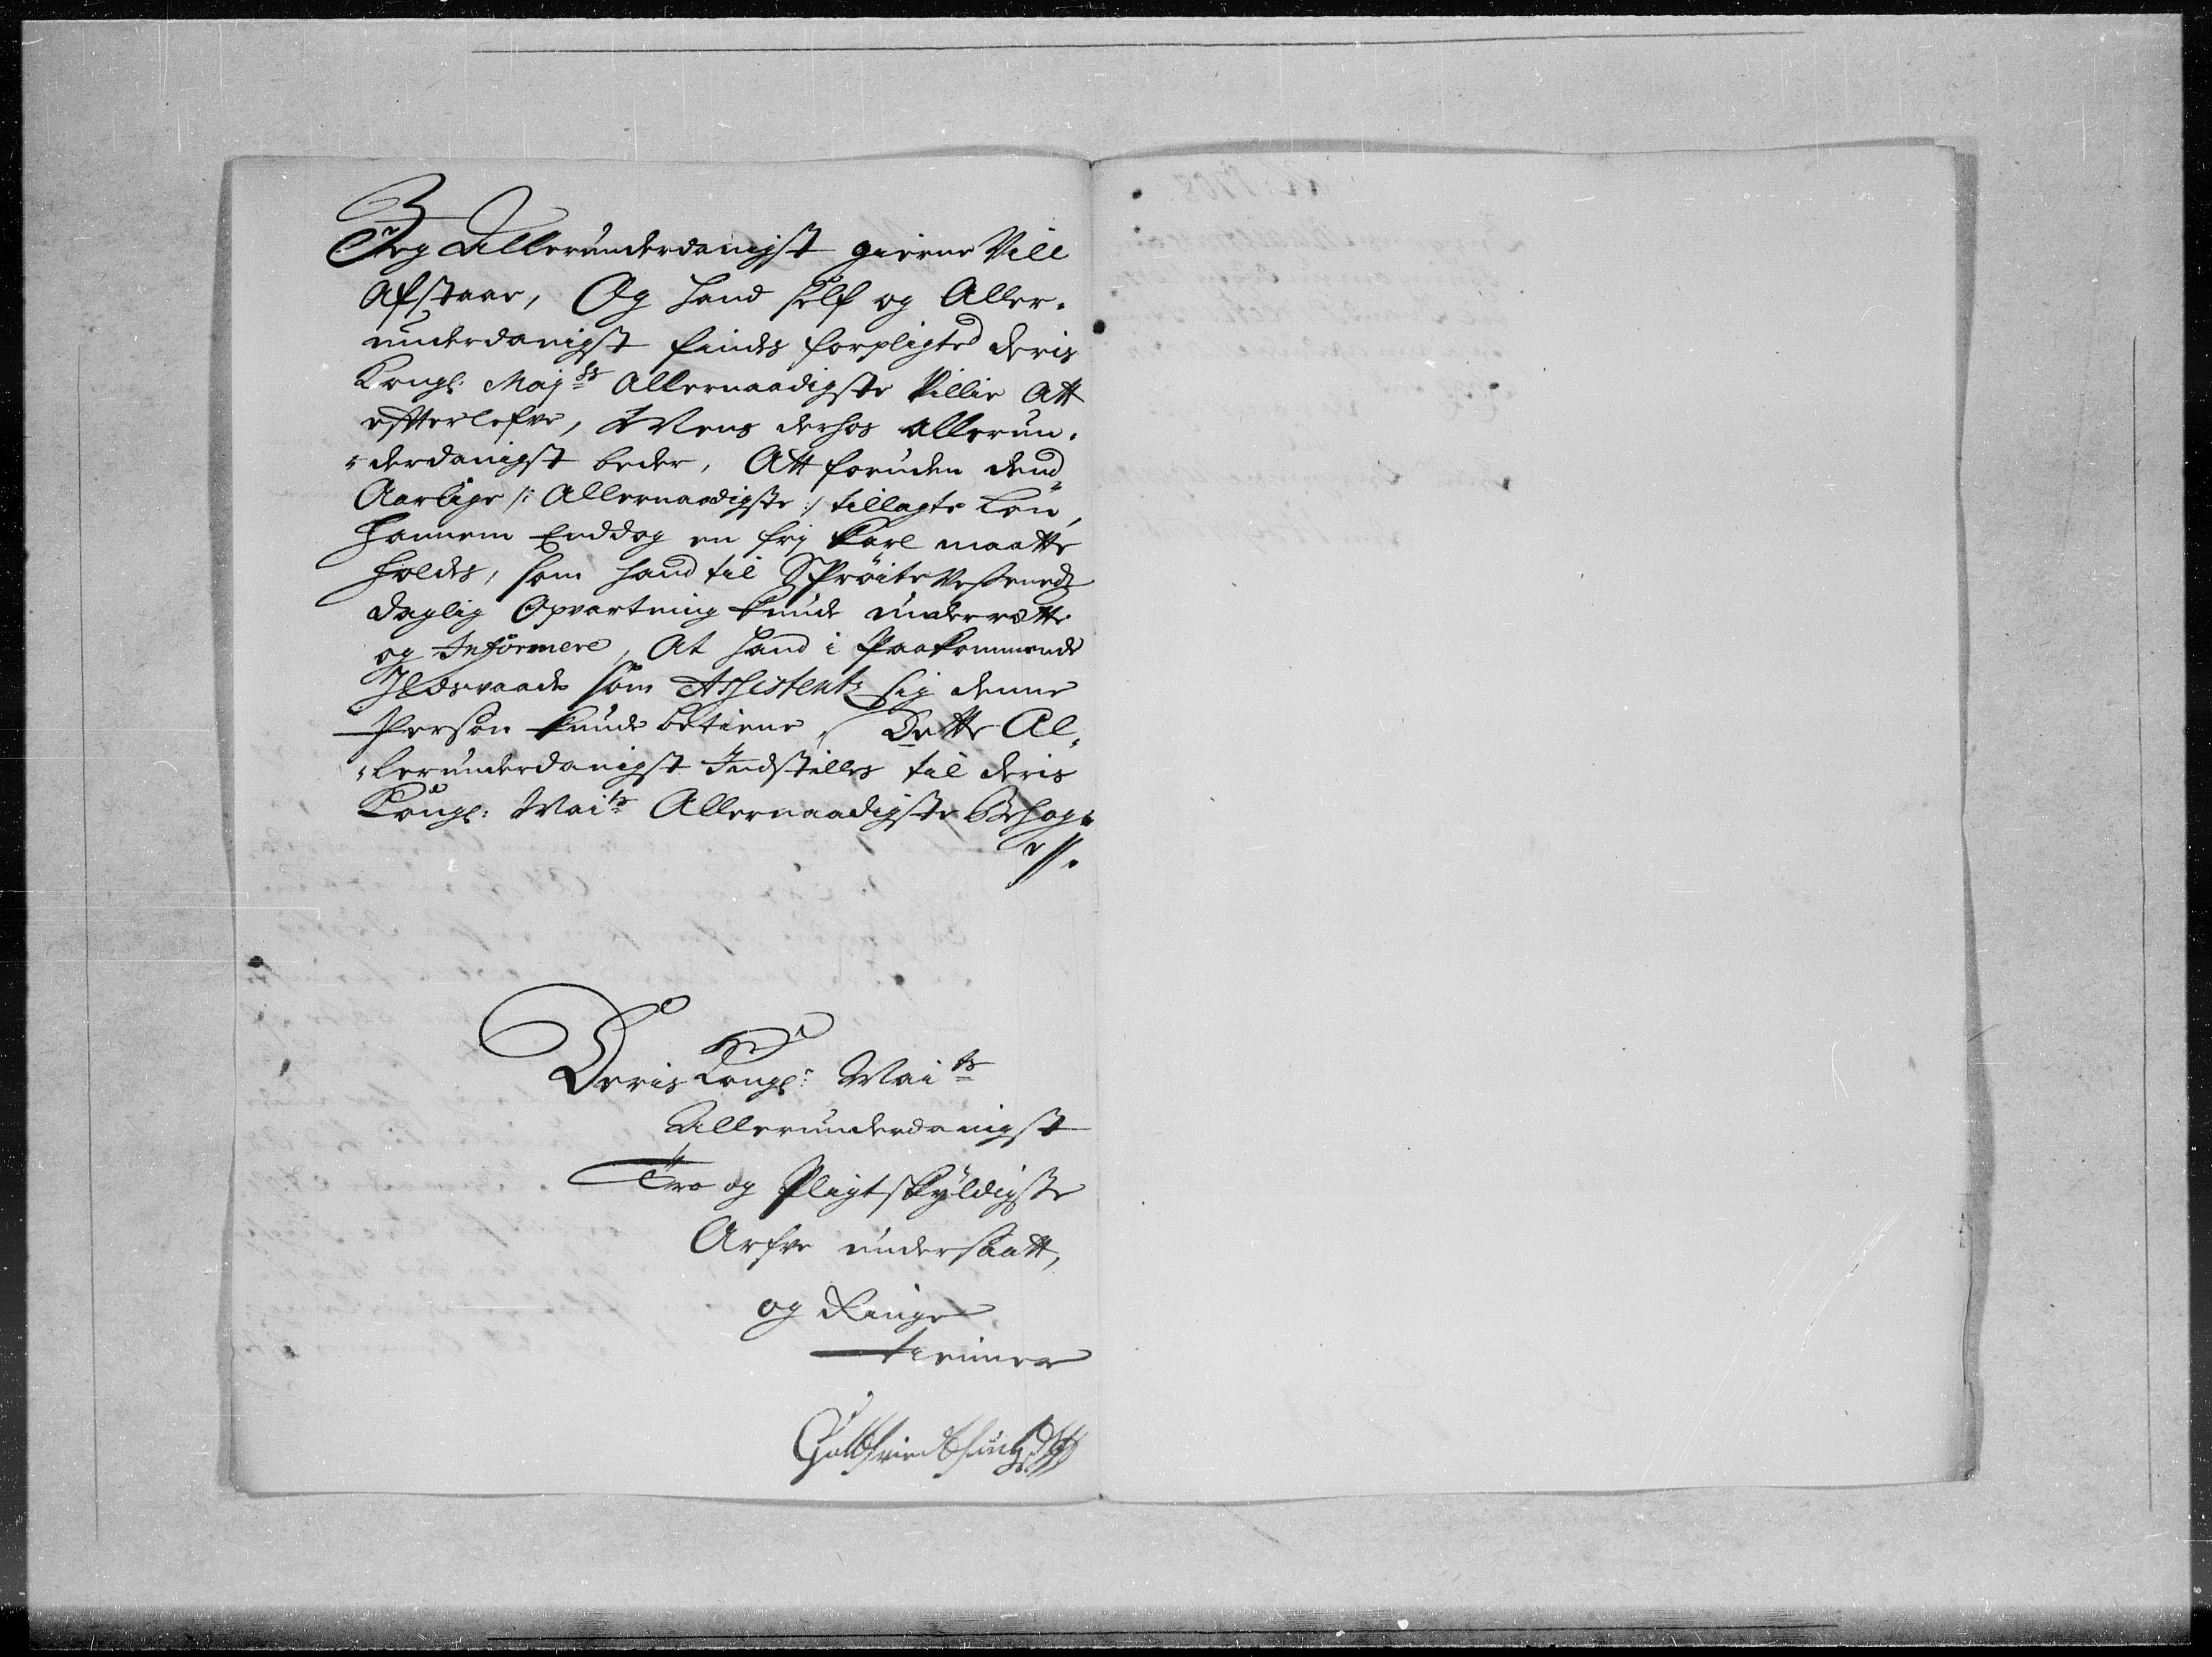 Jeg Allerunderdanigst gierne Vill
Afstaar, Og hand self og Aller-
underdanigst findes forpligted deris
Kongl: Maj:ts Allernaadigste Villie Att
efterlefve, Mens derhos allerun-
-derdanigst beder, Att foruden dend
Aarlige /: Allernaadigste :/ tillagte Lön,
Hannem Enddog en frj Karl maatte
holdes, som hand til Spröite Vessenedz
daglig Opvartning kunde underrette
og Informere, At hand i Paakommende
Ildsvaade som Assistentz sig denne
Person kunde betiene, Dette Al-
-lerunderdanigst Indstilles til deris
Kongl: Mai:ts Allernaadigste Behag.
Deris Kongl: Mai:ts
Allerunderdanigst
Tro og Pligtskyldigste
Arfve undersaatt,
og Ringe
tienner
Gottfried